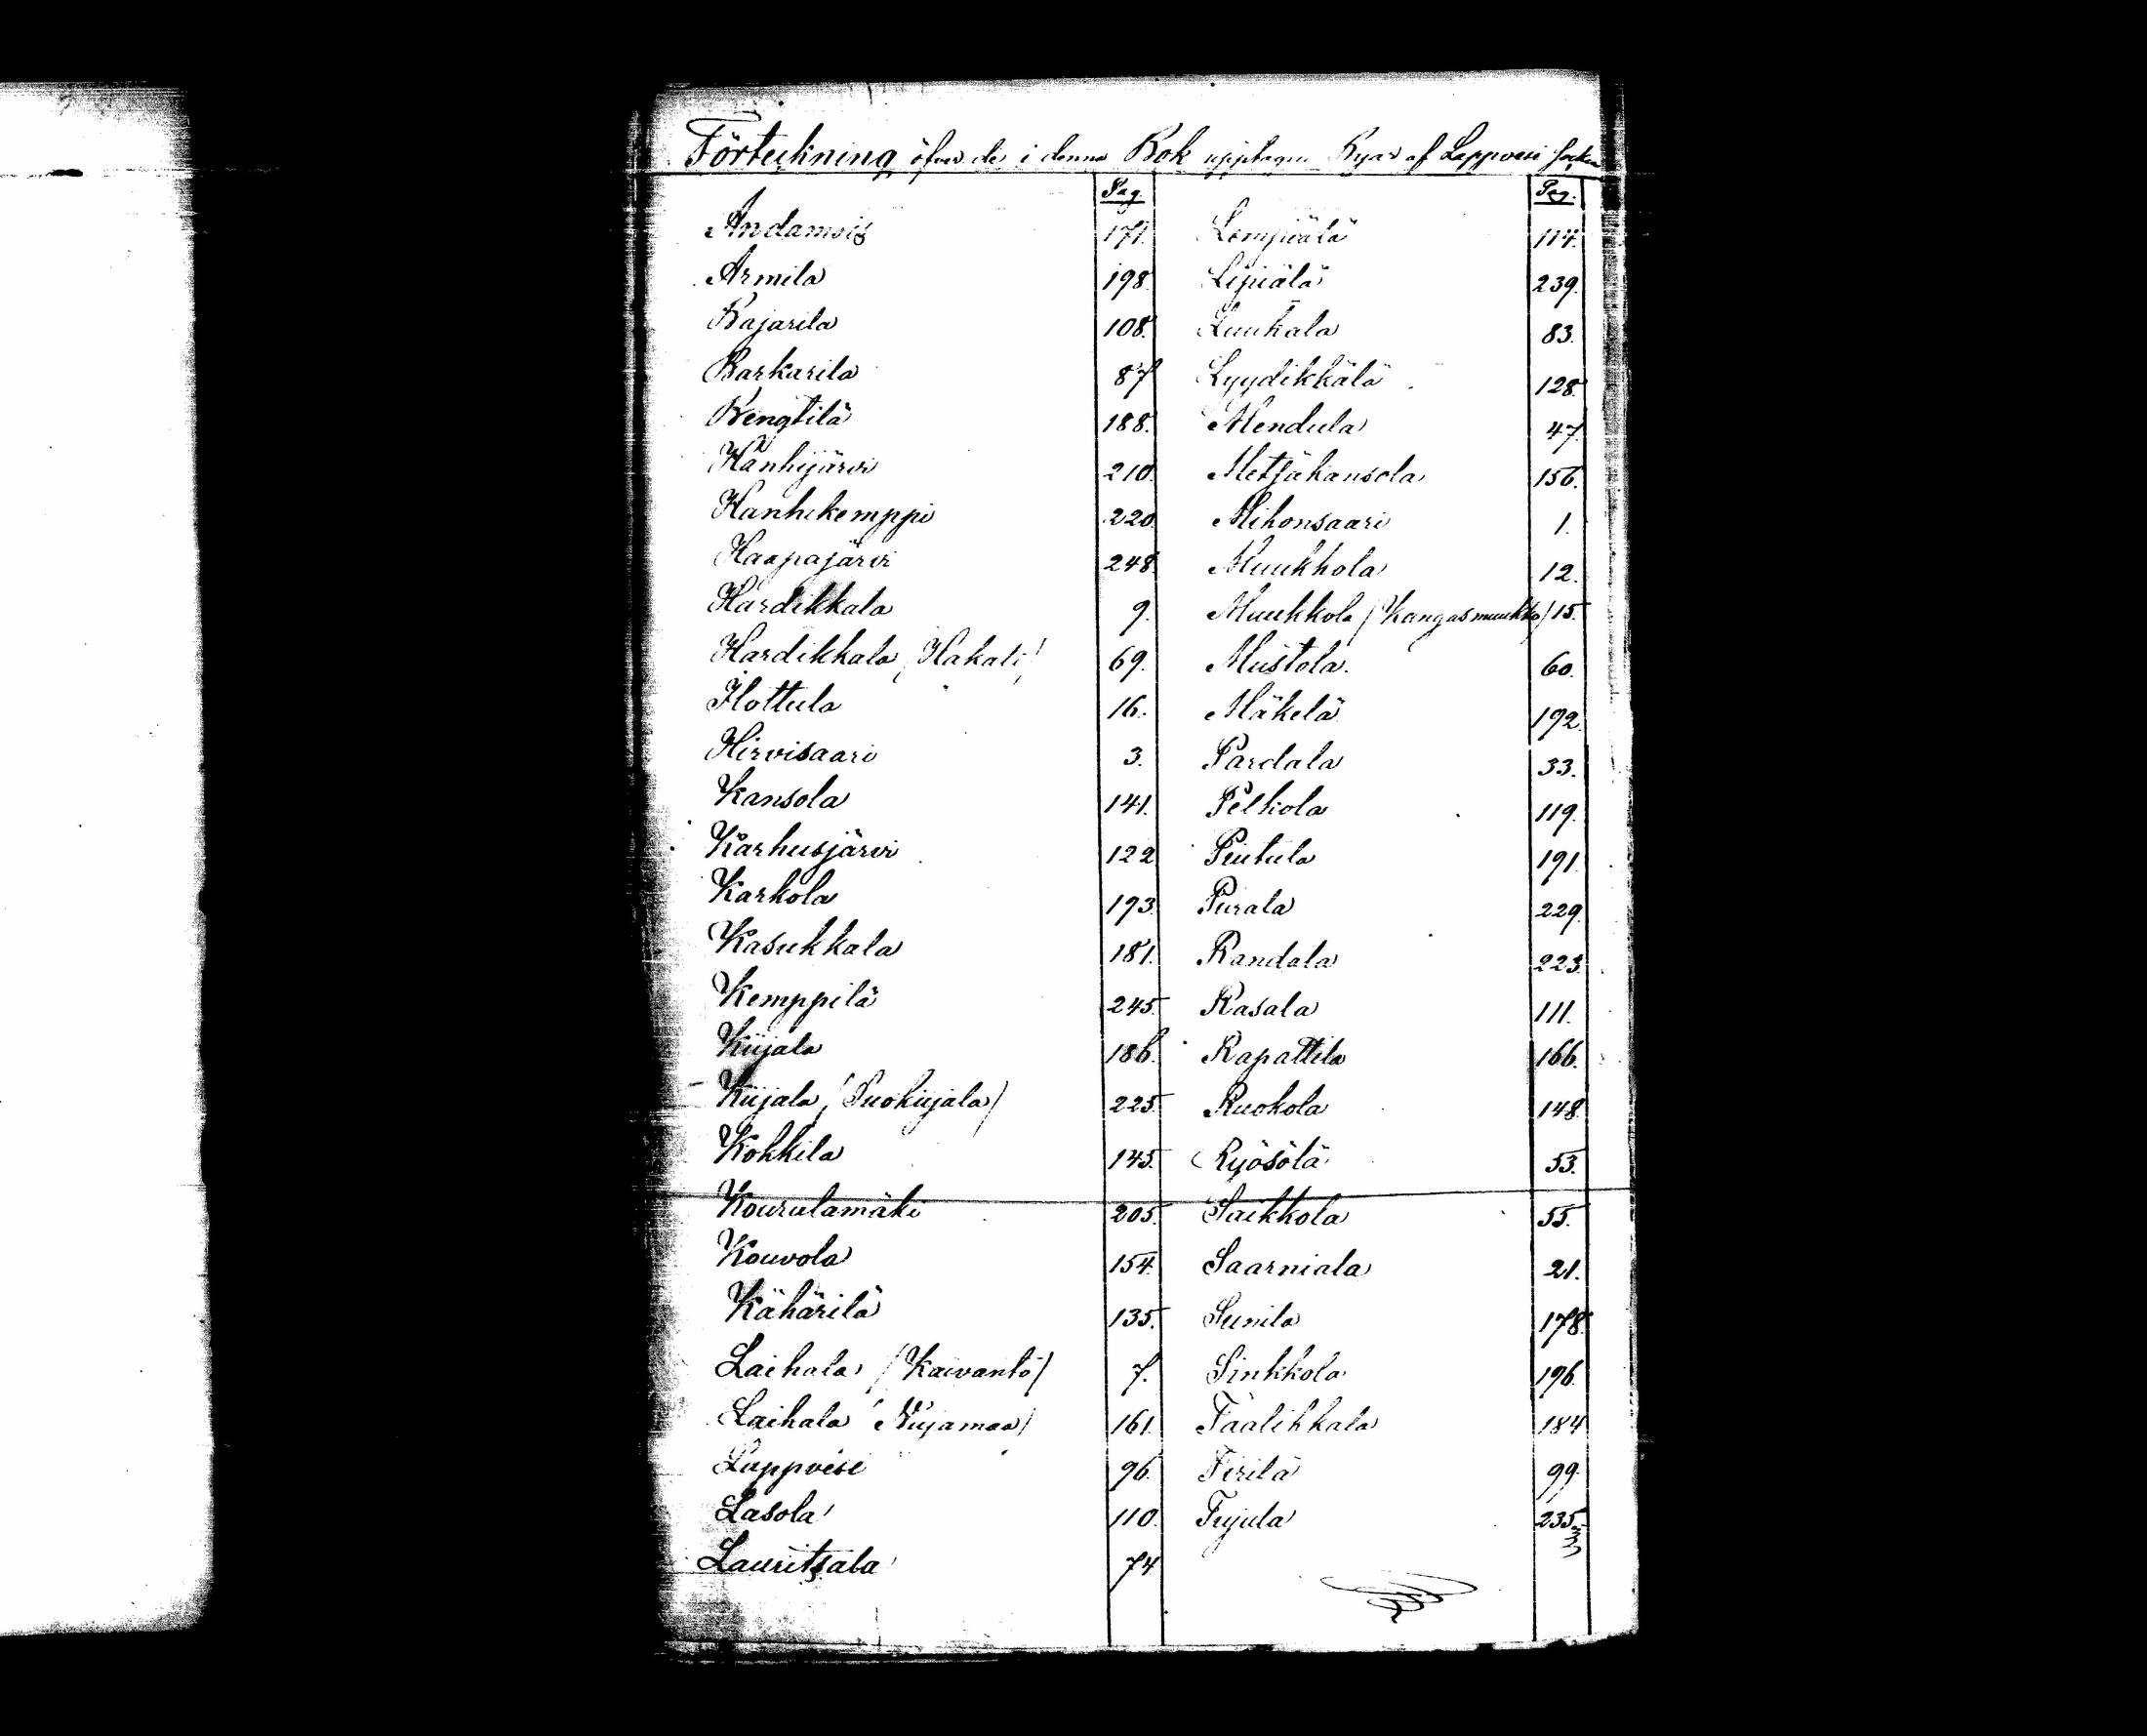 Förteckning öfver de i denna Bok upptagne Byar af Lappvesi socken
Pag. Pag.
Andamois 171. Lempiälä 114.
Armila 198. Lipiälä 239.
Bajarila 108. Luukala 83.
Barkarila 87 Lyydikkälä 128.
Bengtilä 188. Mendula 47.
Hanhijärvi 210. Metsäkansola 156.
Hanhikemppi 220. Mihonsaari 1.
Haapajärvi 248. Muukkola 12.
Hardikkala 9. Muukkola /Kangasmuukko/ 15.
Hardikkala /Hakali/ 69. Mustola. 60.
Hottula 16. Mäkelä 192.
Hirvisaari 3. Pardala 33.
Kansola 141. Pelkola 119.
Karhusjärvi 122 Piutula 191.
Karkola 193. Purala 229.
Kasukkala 181. Randala 223.
Kemppilä 245. Rasala 111.
Kiijala 186. Rapattila 166.
Kiijala /Suokiijala/ 225. Ruokola 148.
Kokkila 145. Ryösölä 53.
Kourulamäki 205. Saikkola 55.
Kouvola 154. Saarniala 21.
Kähärilä 135. Sunila 178.
Laihala /Kaivanto/ 7. Sinkkola 196.
Laihala /Nuijamaa/ 161. Taalikkala 184
Lappvesi 96. Tirilä 99.
Lasola 110. Tujula 235.
Lauritsala 74